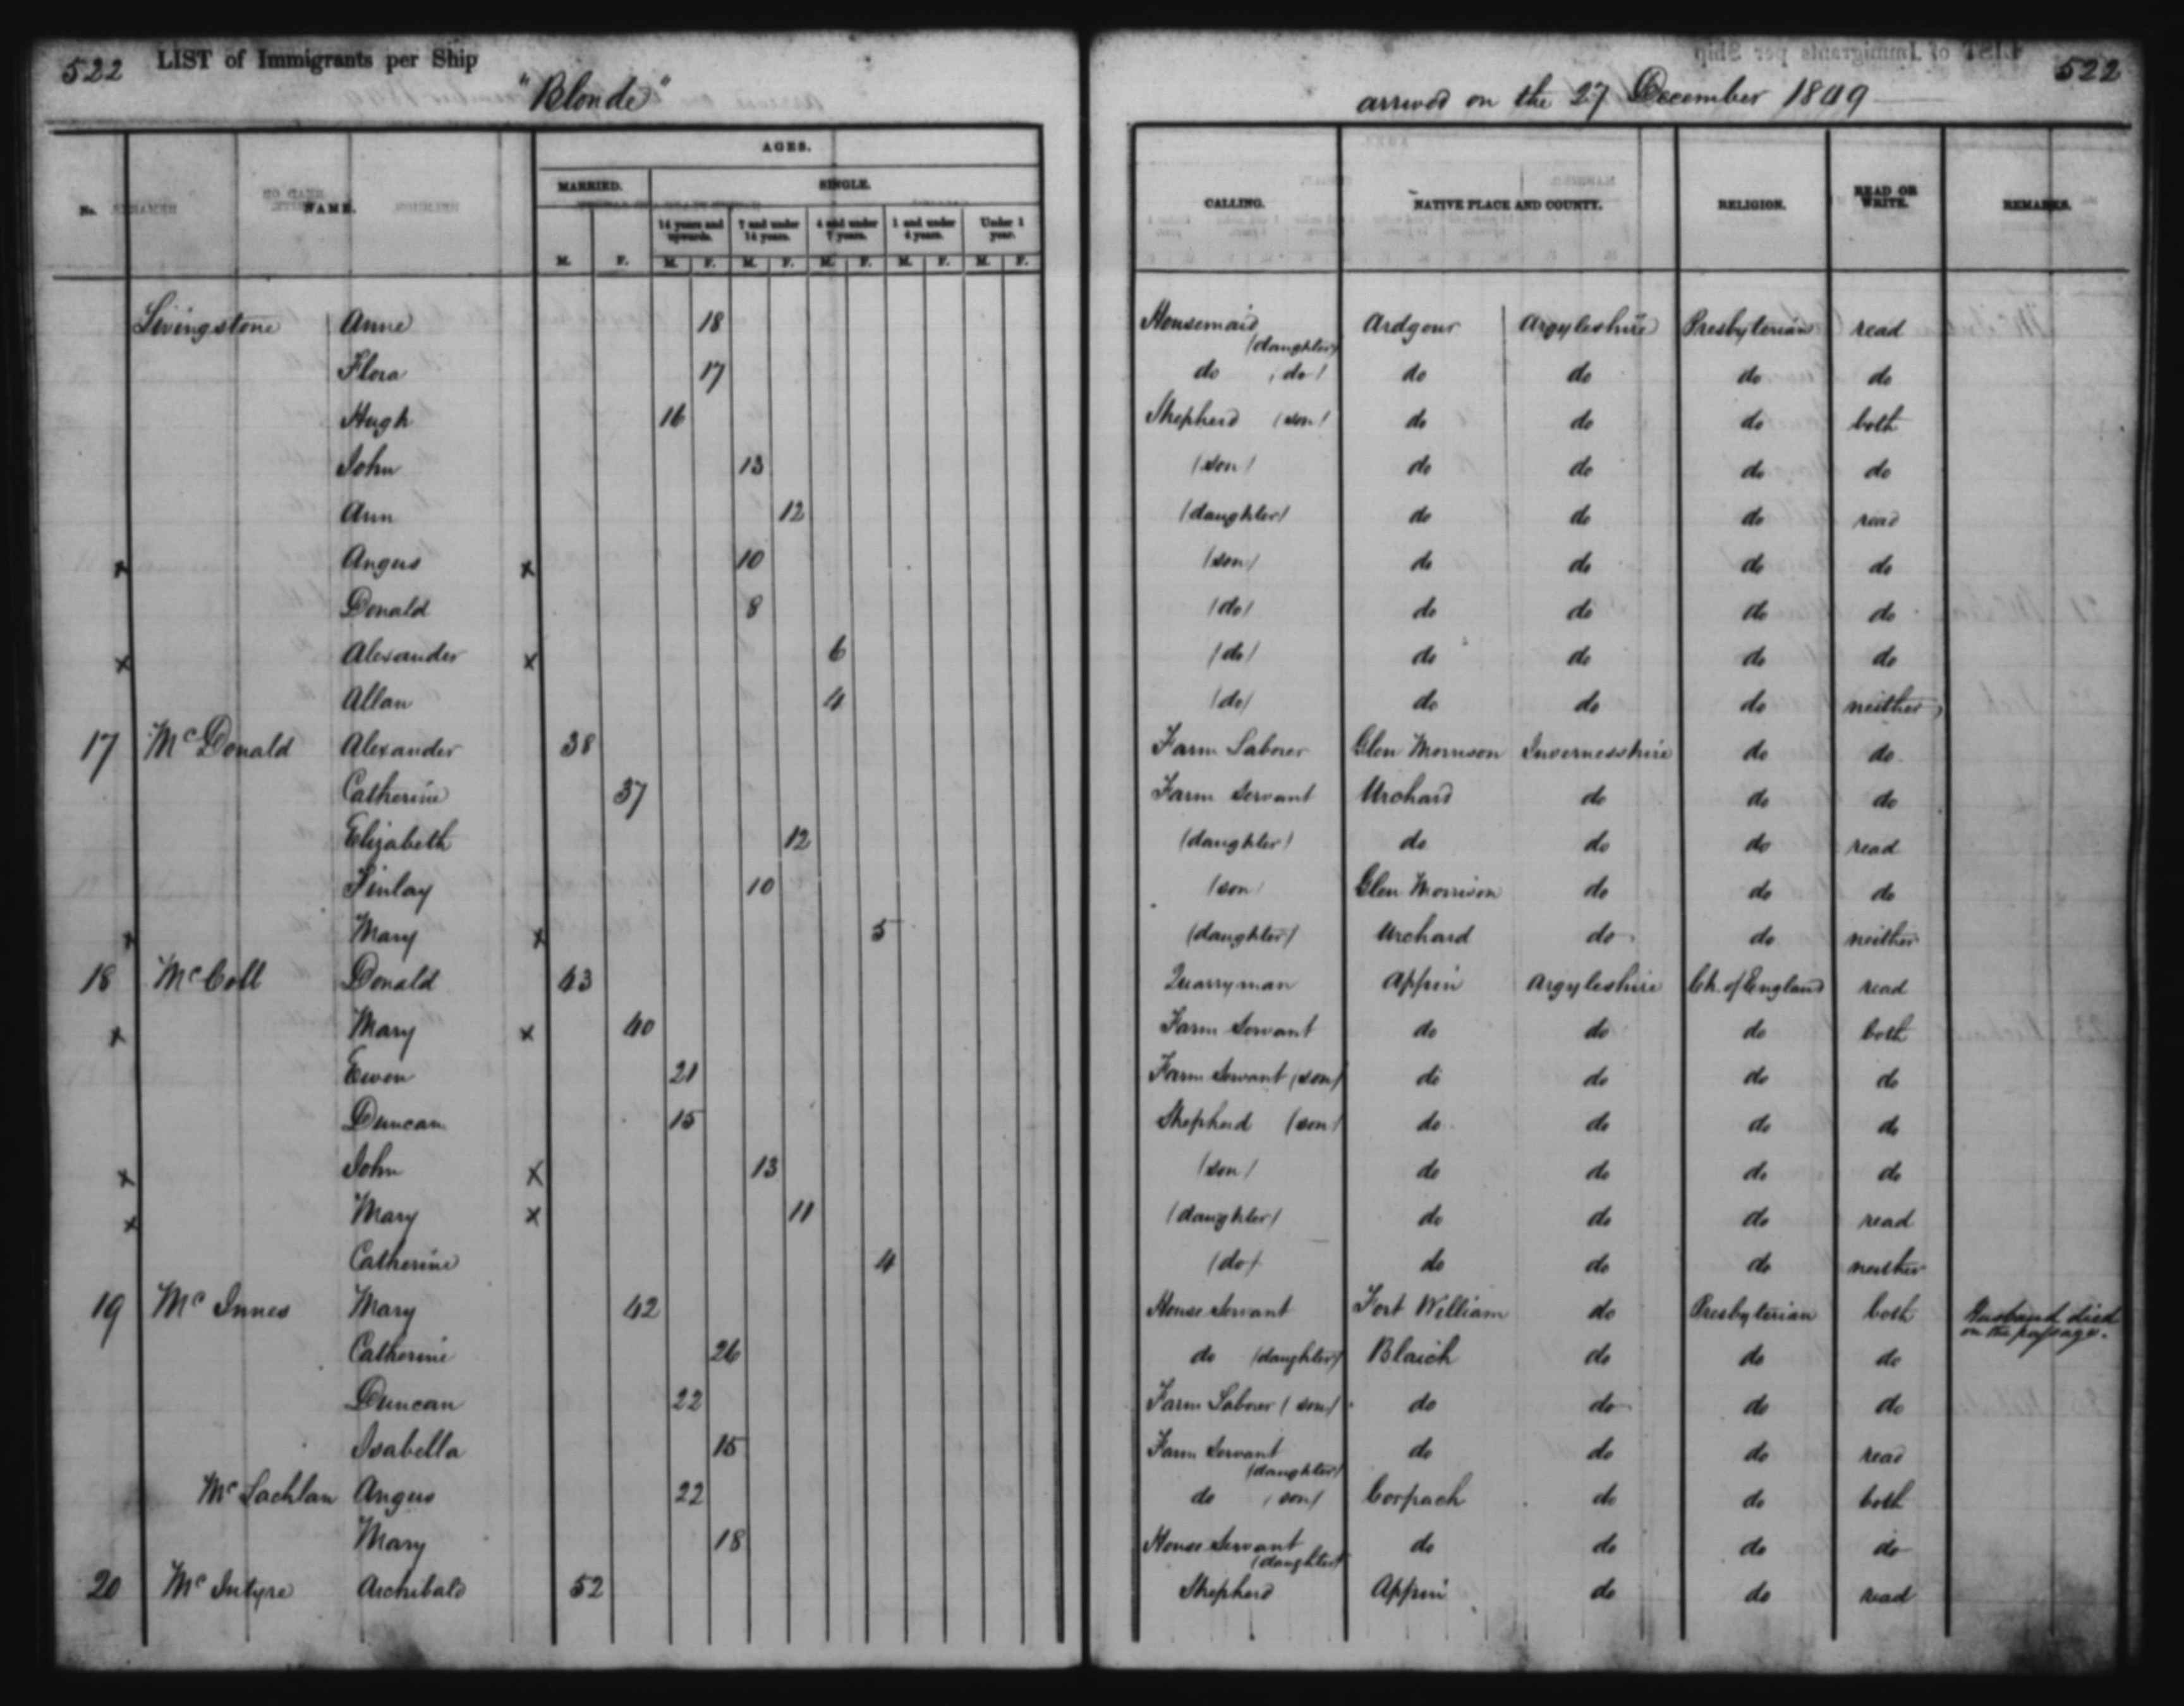 522 LIST of Immigrants per Ship
"Blonde"
arrived on the 27 December 1849
522
AGES.
MARRIED. SINGLE.
No. NAME. 14 years and upwards. 7 and under 14 years. 4 and under 7 years. 1 and under 4 years. Under 1 year.
M. F. M. F. M. F. M. F. M. F. M. F.
CALLING. NATIVE PLACE AND COUNTY. RELIGION. READ OR WRITE. REMARKS.
Livingstone Anne 18 Housemaid (daughter) Ardgour Argyleshire Presbyterian read
Flora 17 do (do) do do do do
Hugh 16 Shepherd (son) do do do both
John 13 (son) do do do do
Ann 12 (daughter) do do do read
x Angus x 10 (son) do do do do
Donald 8 (do) do do do do
x Alexander x 6 (do) do do do do
Allan 4 (do) do do do neither
17 McDonald Alexander 38 Farm Laborer Glen Morrison Invernesshire do do
Catherine 37 Farm Servant Urchard do do do
Elizabeth 12 (daughter) do do do read
Finlay 10 (son) Glen Morrison do do do
x Mary x 5 (daughter) Urchard do do neither
18 McColl Donald 43 Quarryman Appin Argyleshire Ch. of England read
x Mary x 40 Farm Servant do do do both
Ewen 21 Farm Servant (son) do do do do
Duncan 15 Shepherd (son) do do do do
x John x 13 (son) do do do do
x Mary x 11 (daughter) do do do read
Catherine 4 (do) do do do neither
19 McInnes Mary 42 House Servant Fort William do Presbyterian both Husband died on the passage.
Catherine 26 do (daughter) Blaich do do do
Duncan 22 Farm Laborer (son) do do do do
Isabella 15 Farm Servant (daughter) do do do read
McLachlan Angus 22 do (son) Corpach do do both
Mary 18 House Servant (daughter) do do do do
20 McIntyre Archibald 52 Shepherd Appin do do read